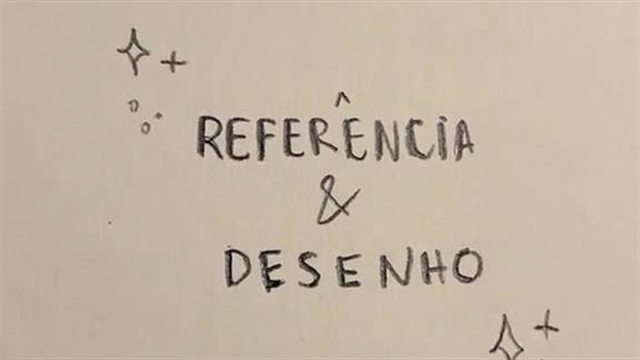 REFERÊNCIA
&
DESENHO